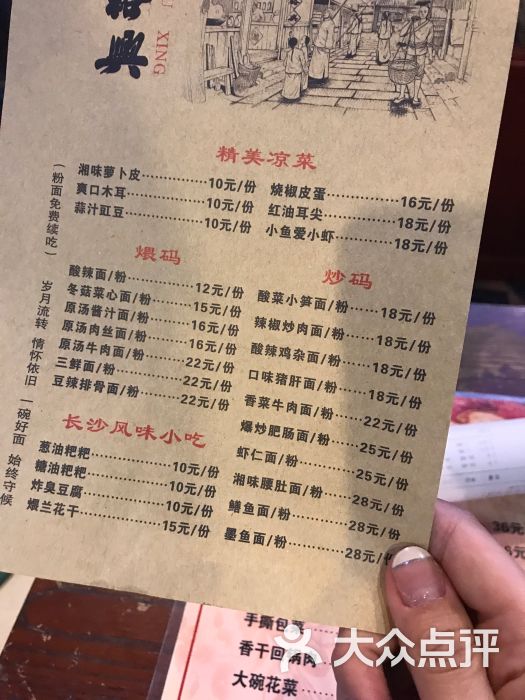 XING
精美凉菜
湘味萝卜皮 10元/份
爽口木耳 10元/份
蒜汁豇豆 10元/份
烧椒皮蛋 16元/份
红油耳尖 18元/份
小鱼爱小虾 18元/份
(粉面免费续吃)
岁月流转 情怀依旧 一碗好面 始终守候
煨码
酸辣面/粉 12元/份
冬菇菜心面/粉 15元/份
原汤酱汁面/粉 16元/份
原汤肉丝面/粉 16元/份
原汤牛肉面/粉 22元/份
三鲜面/粉 22元/份
豆辣排骨面/粉 22元/份
炒码
酸菜小笋面/粉 18元/份
辣椒炒肉面/粉 18元/份
酸辣鸡杂面/粉 18元/份
口味猪肝面/粉 18元/份
香菜牛肉面/粉 22元/份
爆炒肥肠面/粉 25元/份
虾仁面/粉 25元/份
湘味腰肚面/粉 28元/份
鳝鱼面/粉 28元/份
墨鱼面/粉 28元/份
长沙风味小吃
葱油粑粑 10元/份
糖油粑粑 10元/份
炸臭豆腐 10元/份
煨兰花干 15元/份
36元
手撕包菜
香干回锅肉
大碗花菜
大众点评